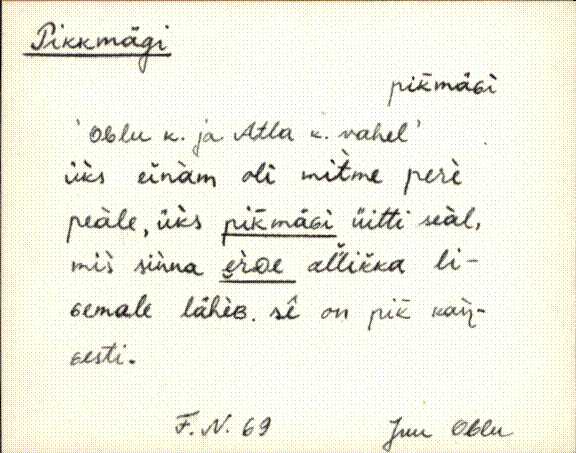 Pikkmägi
pik̄mäɢì
'Oʙlu k. ja Atla k. vahel'
ük̀s eĭnàm oli mit̀me perè
peàle, ük̀s pik̄mäɢì üitti seàl,
mis̀ siǹna erᴅe allikka li-
ɢemale lähèʙ. sê on pik̄ kaǹ-
ɢesti.
F. N. 69 Juu Oʙlu